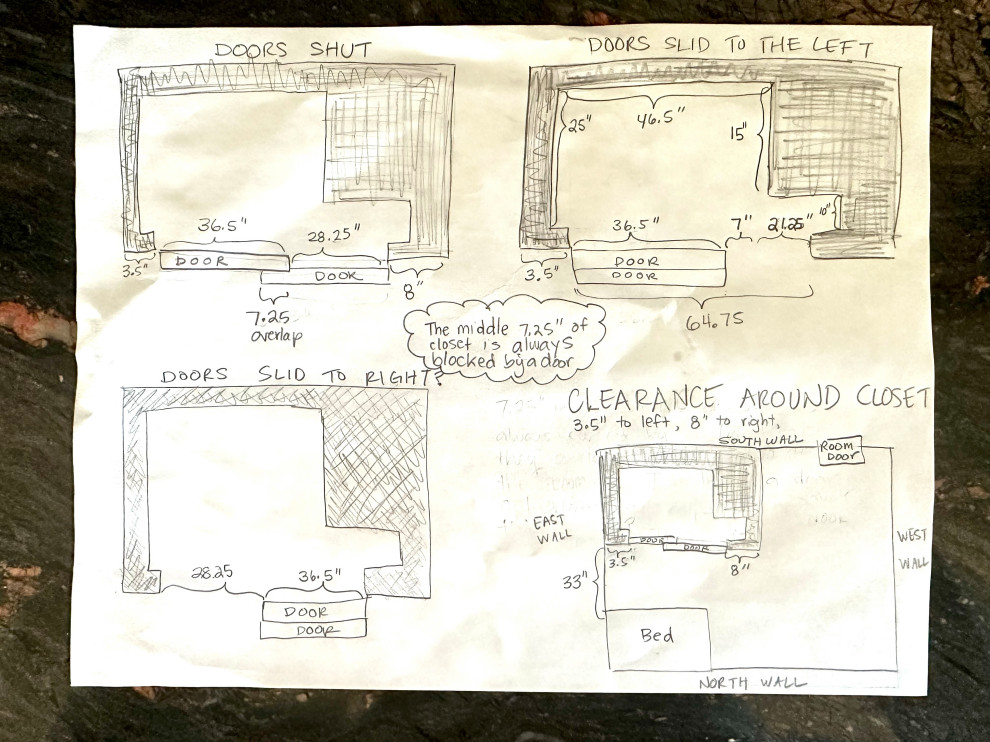 DOORS SHUT
36.5"
28.25"
DOOR
DOOR
3.5"
8"
7.25
overlap
DOORS SLID TO THE LEFT
25"
46.5"
15"
10"
36.5"
7"
21.25"
DOOR
DOOR
3.5"
64.75
The middle 7.25" of
closet is always
blocked by a door
DOORS SLID TO RIGHT?
28.25
36.5"
DOOR
DOOR
CLEARANCE AROUND CLOSET
3.5" to left, 8" to right,
SOUTH WALL
ROOM
DOOR
EAST
WALL
WEST
WALL
DOOR
DOOR
3.5"
8"
33"
Bed
NORTH WALL